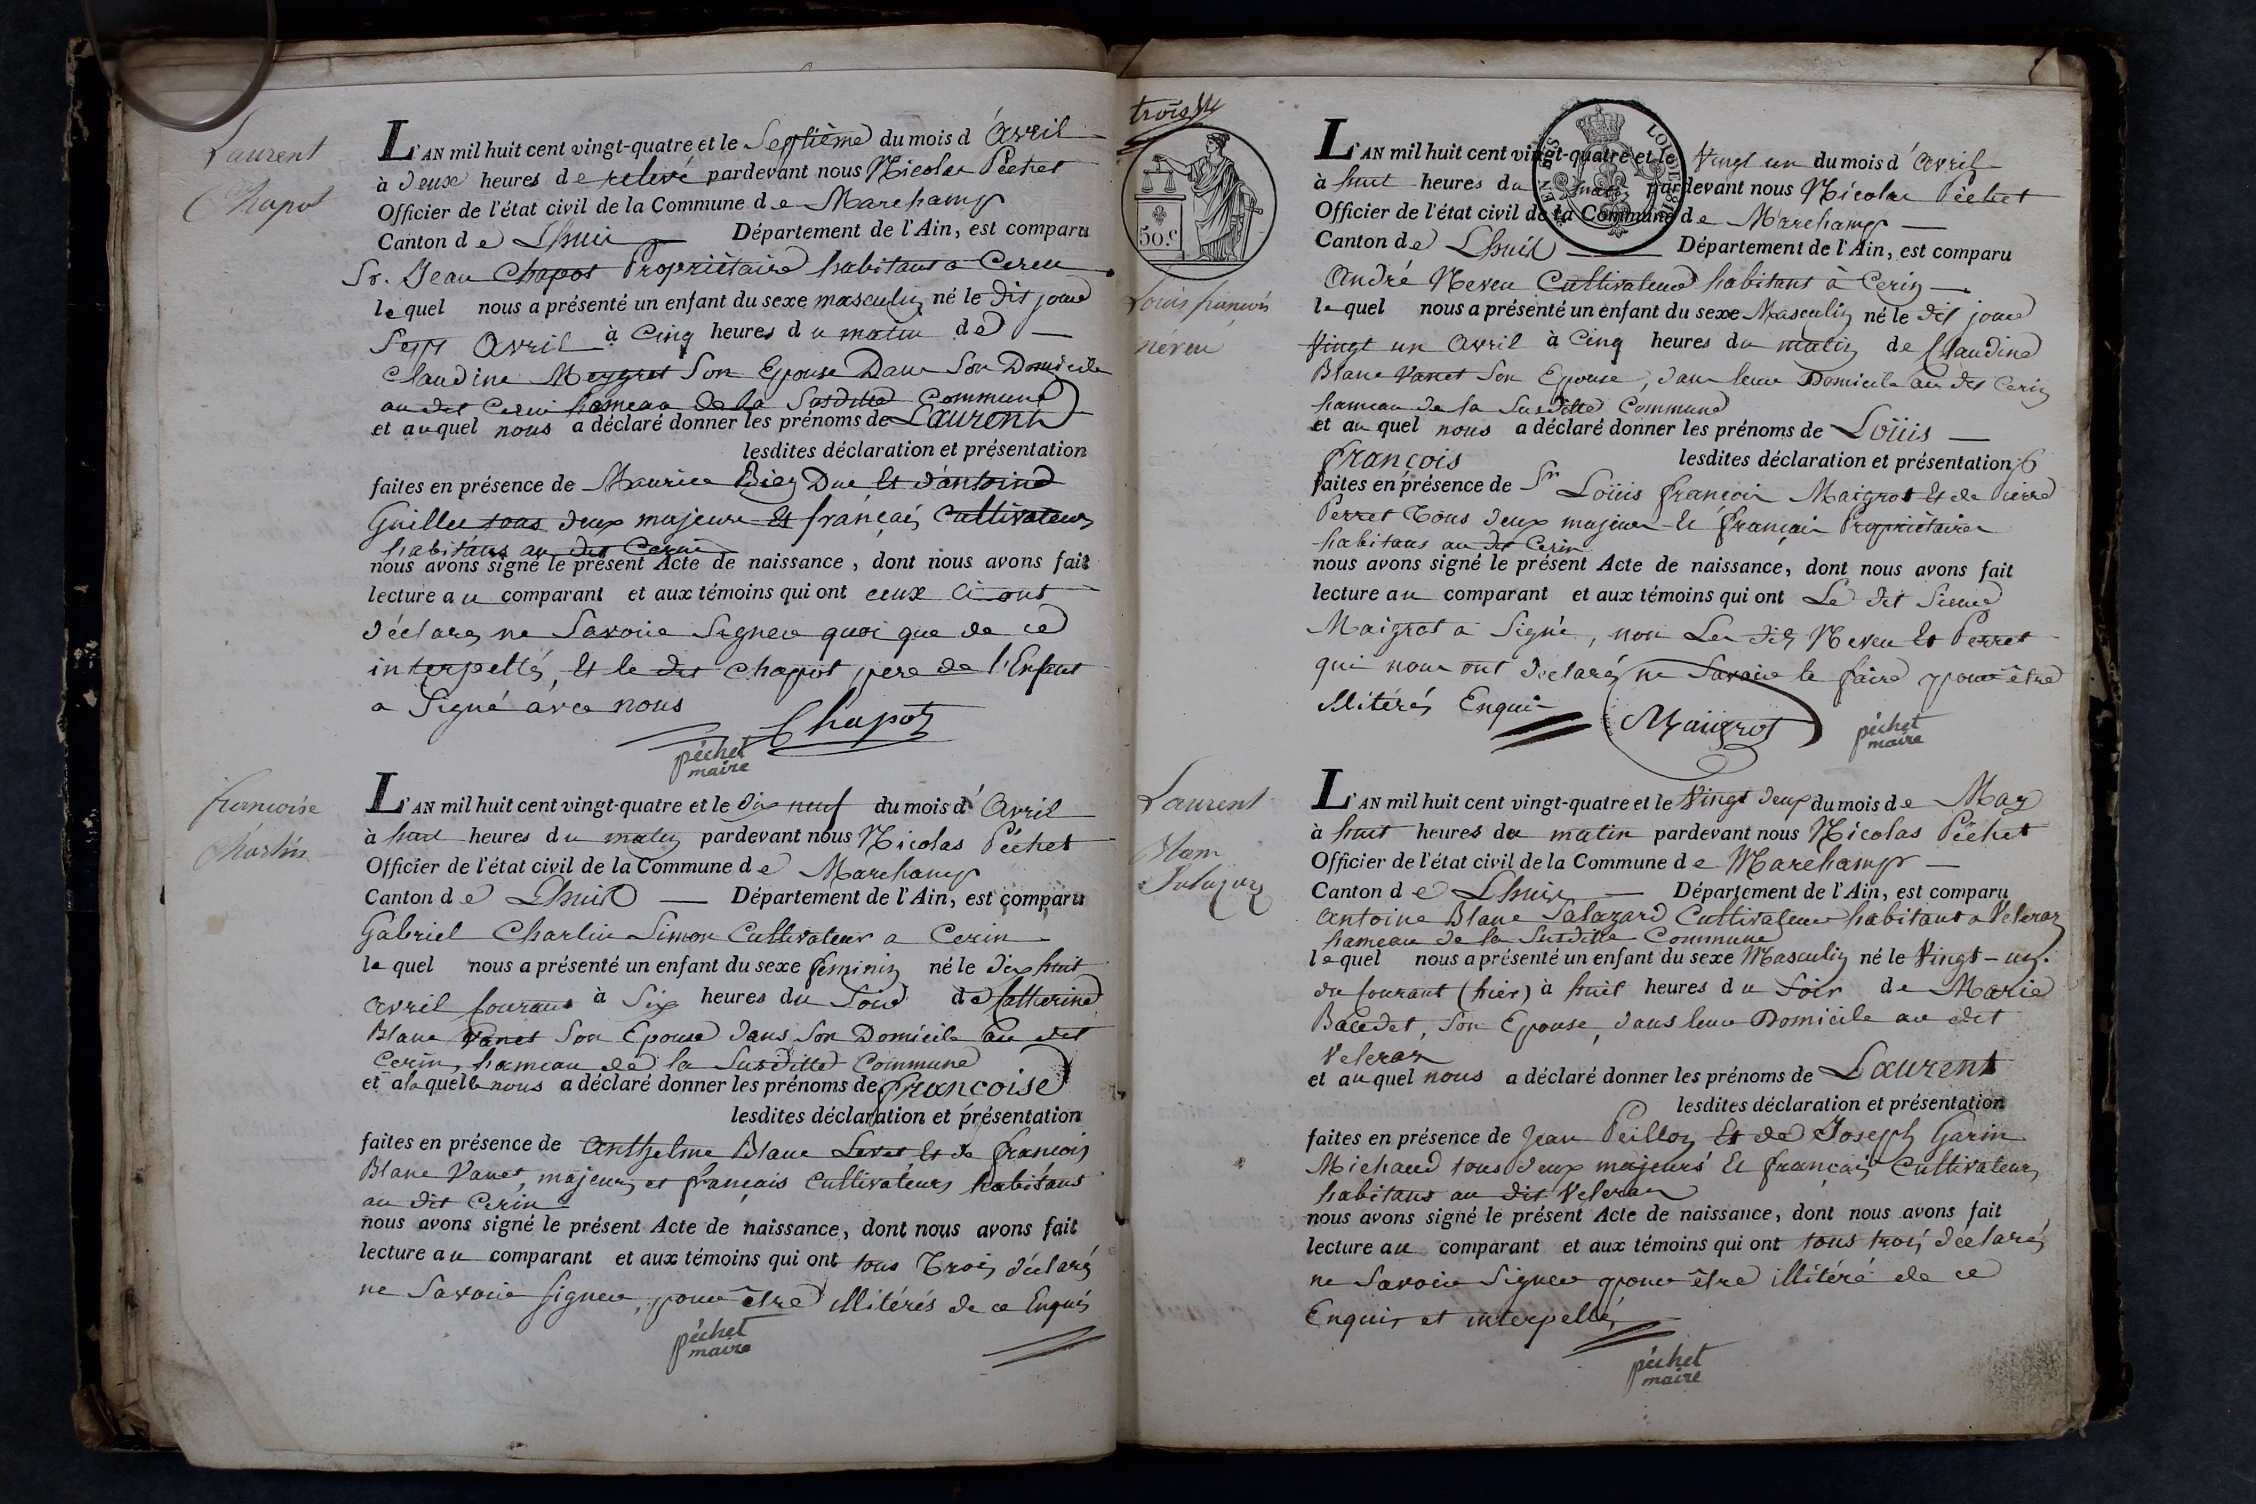 Laurent
Chapot
L'AN mil huit cent vingt-quatre et le Septième du mois d'Avril
à deux heures de relevé pardevant nous Nicolas Péchet
Officier de l'état civil de la Commune de Marchamp
Canton de Lhuis Département de l'Ain, est comparu
Sr. Jean Chapot Propriétaire habitant a Cerin
lequel nous a présenté un enfant du sexe masculin né le dit jour
Sept Avril à Cinq heures du matin de
Claudine Meygret Son Epouse Dans Son Domicile
au dit Cerin hameau de la Susditte Commune
et auquel nous a déclaré donner les prénoms de Laurent
lesdites déclaration et présentation
faites en présence de Maurice Duc Et d'antoine
Guillet tous deux majeurs Et français Cultivateurs
habitans au dit Cerin
nous avons signé le présent Acte de naissance, dont nous avons fait
lecture au comparant et aux témoins qui ont ceux ci ont
déclarés ne Savoir Signer quoi que de ce
interpellés, Et le dit Chapot pere de l'Enfant
a Signé avec nous
Chapot
péchet
maire
francoise
Charlin
L'AN mil huit cent vingt-quatre et le dix neuf du mois d'Avril
à huit heures du matin pardevant nous Nicolas Péchet
Officier de l'état civil de la Commune de Marchamp
Canton de Lhuis Département de l'Ain, est comparu
Gabriel Charlin Simon Cultivateur a Cerin
lequel nous a présenté un enfant du sexe feminin né le dix huit
avril Courant à Six heures du Soir de Catherine
Blanc Vanet Son Epouse dans Son Domicile au dit
Cerin, hameau de la Susditte Commune
et alaquelle nous a déclaré donner les prénoms de françoise
lesdites déclaration et présentation
faites en présence de Anthelme Blanc Levet Et de francois
Blanc Vanet, majeurs et français Cultivateurs habitans
au dit Cerin
nous avons signé le présent Acte de naissance, dont nous avons fait
lecture au comparant et aux témoins qui ont tous Trois déclarés
ne Savoir Signer, pour être illitérés de ce Enquis
péchet
maire
50.c
EN SUS
LOI DE 1816
Louis françois
néveu
L'AN mil huit cent vingt-quatre et le Vingt un du mois d'Avril
à huit heures du matin pardevant nous Nicolas Péchet
Officier de l'état civil de la Commune de Marchamp
Canton de Lhuis Département de l'Ain, est comparu
André Neveu Cultivateur habitant à Cerin
lequel nous a présenté un enfant du sexe Masculin né le dit jour
Vingt un Avril à Cinq heures du matin de Claudine
Blanc Vanet Son Epouse, dans leur Domicile au dit Cerin
hameau de la Susditte Commune
et auquel nous a déclaré donner les prénoms de Loüis
françois lesdites déclaration et présentation
faites en présence de Sr Loüis françois Maigrot Et de Pierre
Perret Tous deux majeurs Et français Propriétaires
habitans au dit Cerin
nous avons signé le présent Acte de naissance, dont nous avons fait
lecture au comparant et aux témoins qui ont Le dit Sieur
Maigrot a Signé, non Les dits Neveu Et Perret
qui nous ont déclarés ne Savoir le faire pour être
illitérés Enquis
Maigrot
péchet
maire
Laurent
Blanc
Salazar
L'AN mil huit cent vingt-quatre et le Vingt deux du mois de May
à huit heures du matin pardevant nous Nicolas Péchet
Officier de l'état civil de la Commune de Marchamp
Canton de Lhuis Département de l'Ain, est comparu
Antoine Blanc Salazard Cultivateur habitant a Veleraz
hameau de la Susditte Commune
lequel nous a présenté un enfant du sexe Masculin né le Vingt-un
du Courant (hier) à huit heures du Soir de Marie
Baudet, Son Epouse, dans leur Domicile au dit
Veleraz
et auquel nous a déclaré donner les prénoms de Laurent
lesdites déclaration et présentation
faites en présence de Jean Peillon Et de Joseph Garin
Michaud tous deux majeurs Et français Cultivateurs
habitans au dit Veleraz
nous avons signé le présent Acte de naissance, dont nous avons fait
lecture au comparant et aux témoins qui ont tous trois déclarés
ne Savoir Signer pour être illitéré de ce
Enquis et interpellés
péchet
maire